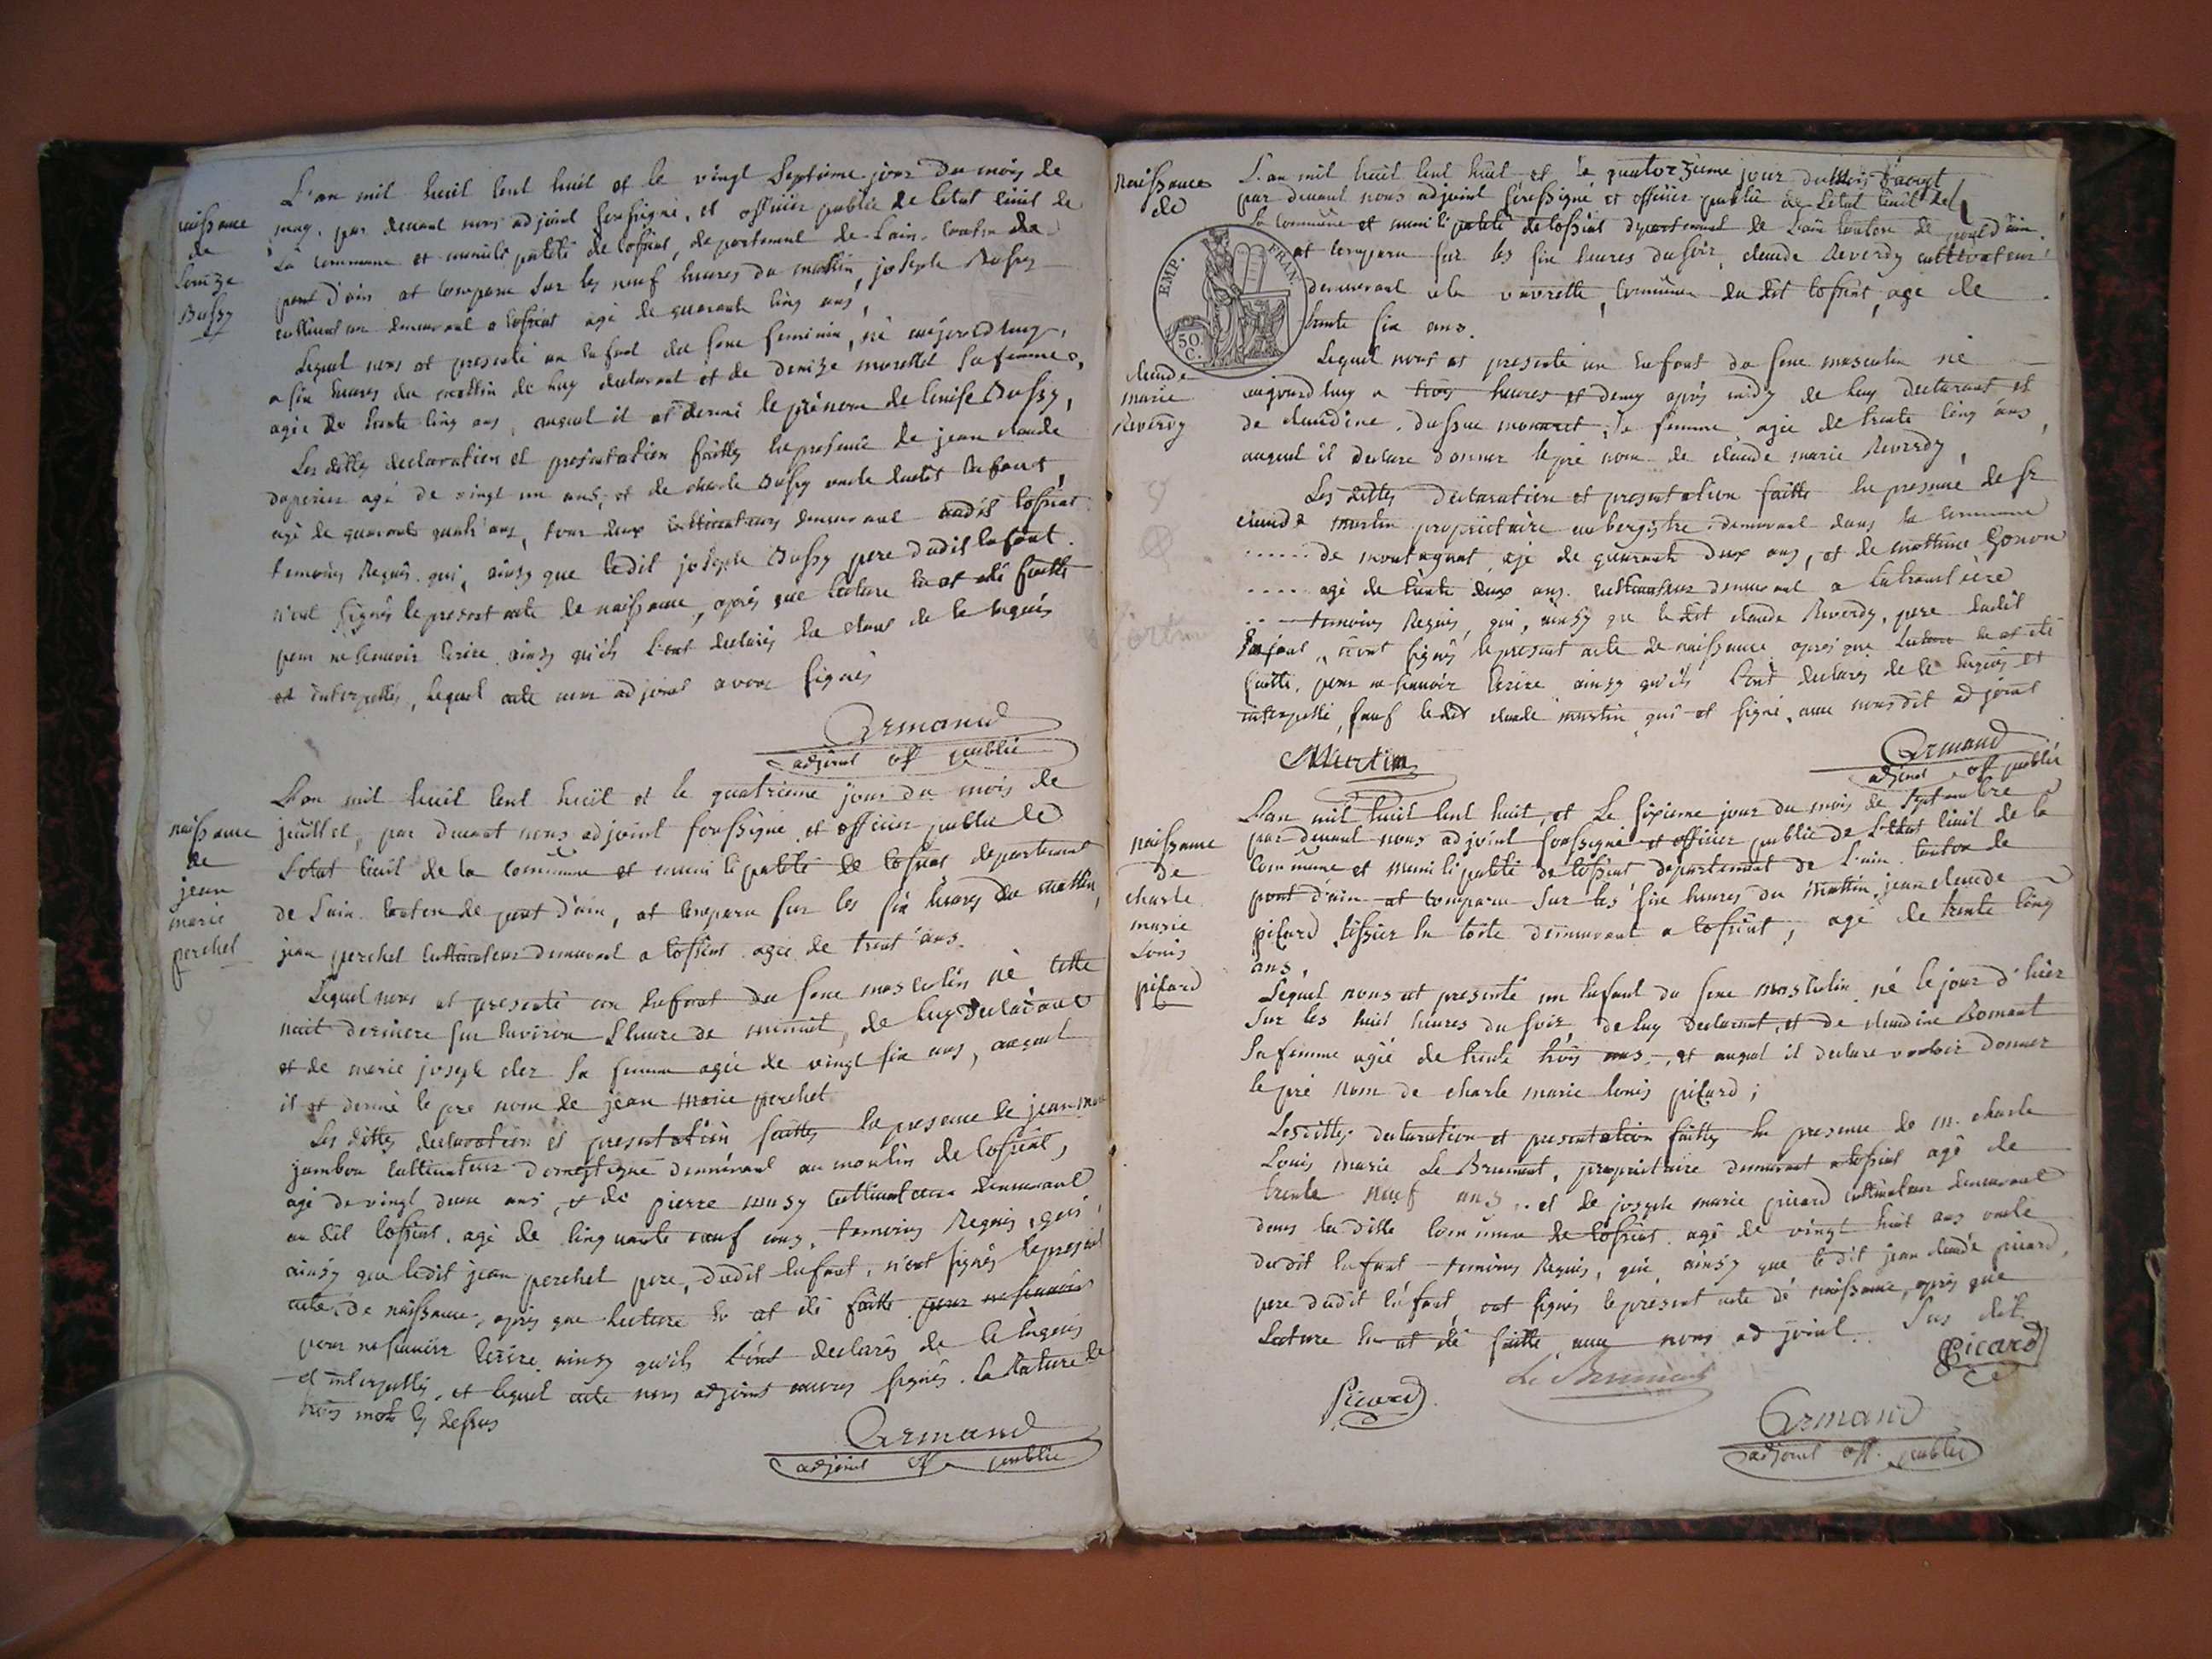 L'an mil huit cent huit et le vingt septieme jour du mois de
may. par devant nous adjoint soussigné, et officier public de letat civil de
naissance
de
Louize
Bussy
La commune et municipalité de lossiat, departement de Lain. canton de
pont d'ain at comparu sur les neuf heures du mattin, joseph Bussy
cultivateur demeurant a lossiat agé de quarante cinq ans,
Lequel nous at presenté un enfant du sexe feminin, né aujourd huy,
a six heures du mattin de luy declarant et de denize morellet sa femme,
agée de trente cinq ans, auquel il at donné le prénom de louise Bussy,
Les dittes declaration et presentation faittes en presence de jean claude
duperier agé de vingt un ans, et de charle Bussy oncle dudit enfant,
agé de quarante quatr'ans, tous deux cultivateurs demeurant audit lossiat
temoins Requis. qui, ainsy que ledit joseph Bussy pere dudit enfant.
n'ont signés le present acte de naissance, après que lecture en at été faitte
pour ne scavoir ecrire ainsy qu'ils l'ont declarés de ce enquis
et interpellés, lequel acte nous adjoint avons signés
Armand
adjoint off public
L'an mil huit cent huit et le quatrieme jour du mois de
naissance
de
jean
marie
perchet
juillet, par devant nous adjoint soussigné et officier public de
L'etat civil de la commune et municipalité de lossiat departement
de Lain. canton de pont d'ain, at comparu sur les six heures du mattin,
jean perchet cultivateur demeurant a lossiat agée de trent'ans.
Lequel nous at presenté un enfant du sexe masculin né cette
nuit derniere sur environ L'heure de minuit, de luy declarant
et de marie joseph clez sa femme agée de vingt six ans, auquel
il at donné le pre nom de jean marie perchet
Les dittes declaration et presentation faittes en presence de jean marie
jambon cultivateur domestique demeurant au moulin de lossiat,
agé de vingt deux ans, et de pierre musy cultivateur demeurant
au dit lossiat, agé de cinquante neuf ans, temoins Requis, qui,
ainsy que ledit jean perchet pere, dudit enfant, n'ont signés le present
acte de naissance, après que lecture en at été faitte pour ne scavoir
pour ne scavoir ecrire ainsy qu'ils L'ont declarés de ce enquis
et interpellés, et lequel acte nous adjoint avons signés. la Rature de
trois mots cy dessus
Armand
adjoint off public
Naissance
de
claude
marie
Reverdy
L'an mil huit cent huit et le quatorzieme jour du mois d'aougt
par devant nous adjoint soussigné et officier public de L'etat civil de
la commune et municipalité de lossiat departement de L'ain canton de pont d'ain.
at comparu sur les six heures du soir, claude Reverdy cultivateur
EMP. FRAN.
50 C.
demeurant a la vavrette, commune du dit lossiat, age de
trente six ans.
Lequel nous at presenté un enfant du sexe masculin né
aujourd huy a trois heures et demy après midy de luy declarant et
de claudine sa femme agée de trente cinq ans,
auquel il declare donner le pré nom de claude marie Reverdy,
Les dittes declaration et presentation faitte en presence de sr
claude martin proprietaire aubergiste demeurant dans la commune
...... de montagnat, agé de quarante deux ans, et de Gonon
..... agé de trente deux ans. cultivateur demeurant a
... temoins Requis, qui, ainsy que le dit claude Reverdy, pere dudit
Enfant, n'ont signés le present acte de naissance après que lecture en at été
faitte, pour ne scavoir ecrire ainsy qu'ils l'ont declarés de ce enquis et
interpellé, sauf ledit claude martin qui at signé, avec nousdit adjoint
Martin
Armand
adjoint off publié
naissance
de
charle
marie
Louis
picard
L'an mil huit cent huit, et Le sixieme jour du mois de septembre
par devant nous adjoint soussigné et officier public de L'etat civil de la
commune et municipalité de lossiat departement de L'ain. canton de
pont d'ain at comparu sur les six heures du mattin, jean claude
picard tissier en toile demeurant a lossiat, agé de trente cinq
ans,
Lequel nous at presenté un enfant du sexe masculin né le jour d'hier
sur les huit heures du soir, de luy declarant, et de claudine Romant
sa femme agée de trente trois ans, et auquel il declare vouloir donner
le pré nom de charle marie louis picard;
Les dittes declaration et presentation faittes en presence de m. charle
Louis marie Le Brument, proprietaire demeurant a lossiat agé de
trente neuf ans .. et de joseph marie picard cultivateur demeurant
dans la ditte commune de lossiat agé de vingt huit ans oncle
dudit enfant temoins Requis, qui, ainsy que le dit jean claude picard,
pere dudit enfant, ont signés le present acte de naissance, après que
Lecture en at été faitte avec nous adjoint sus dit.
Picard
Le Brument
Picard
Armand
adjoint off. public